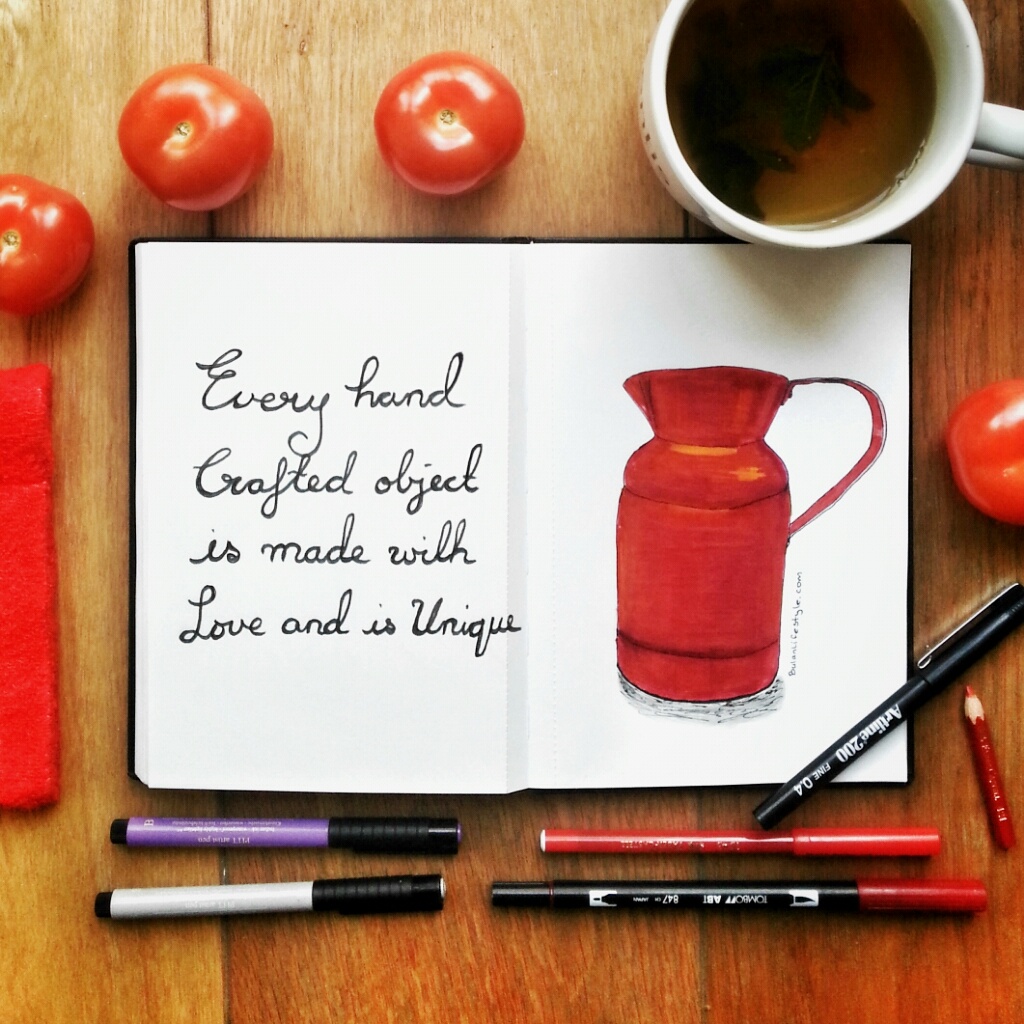 Every hand
Crafted object
is made with
Love and is Unique
BulanLifestyle.com
Artline 200
FINE 0.4
PITT artist pen
TOMBOW ABT
847
JAPAN